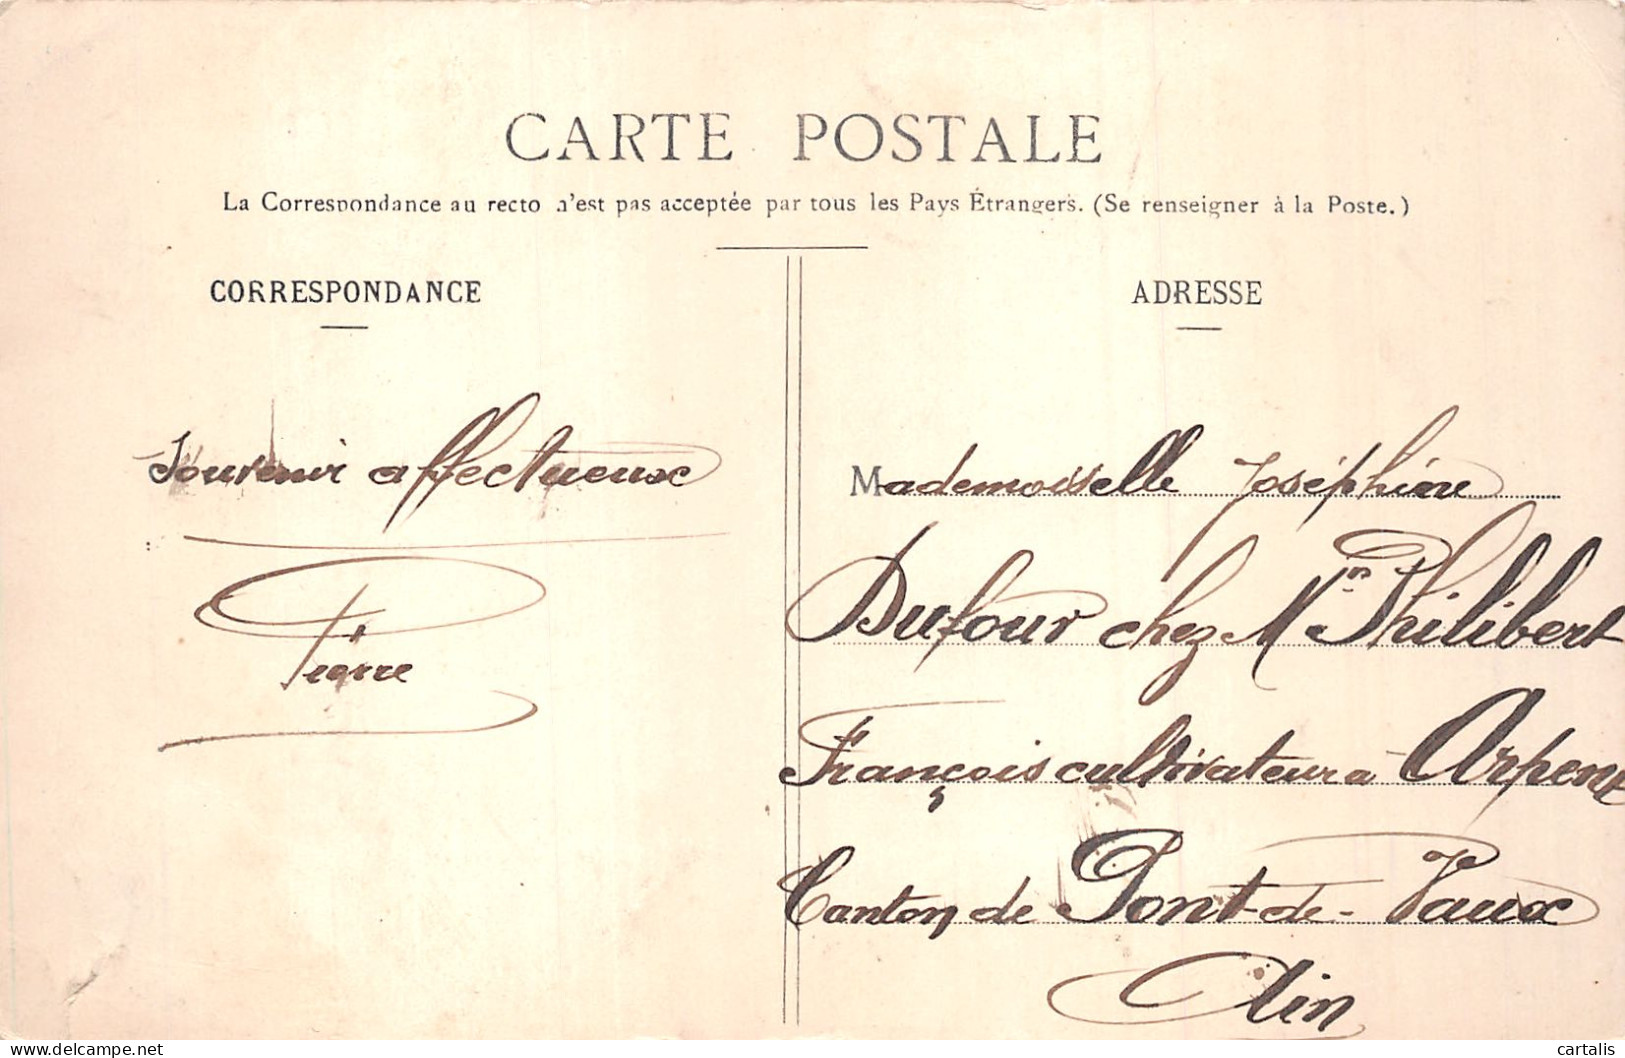 CARTE POSTALE
La Correspondance au recto n'est pas acceptée par tous les Pays Étrangers. (Se renseigner à la Poste.)
CORRESPONDANCE
Souvenir affectueux
Pierre
ADRESSE
Mademoiselle Joséphine
Dufour chez Philibert
François cultivateur à
Canton de Pont-de-Vaux
Ain
www.delcampe.net
cartalis